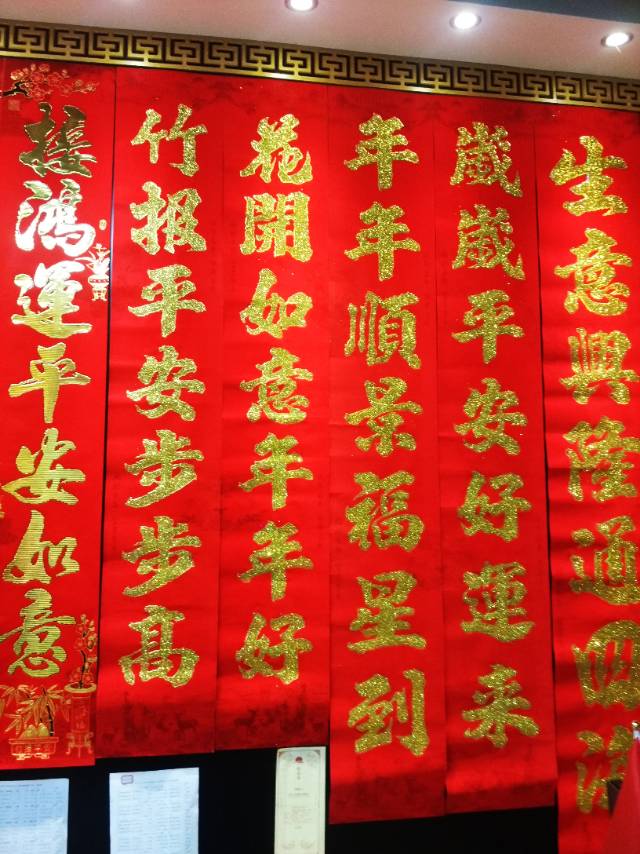 生意興隆通四海
歲歲平安好運来
年年順景福星到
花開如意年年好
竹報平安步步高
接鴻運平安如意